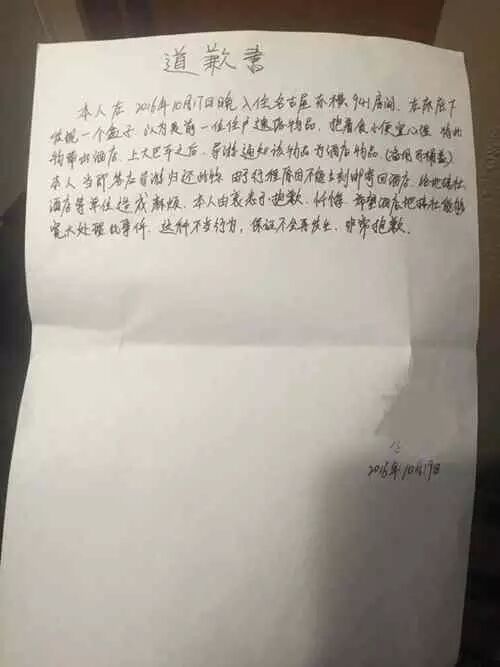 道歉書
本人在2016年10月17日晚入住名古屋东横941房间,在床底下
发现一个盒子,以为是前一位住户遗落物品,抱着贪小便宜心理,将此
物带出酒店,上大巴车之后,导游通知该物品为酒店物品(洁便器桶盖)
本人当即答应导游归还此物,由于行程原因不能立刻邮寄回酒店,给地接社,
酒店等单位造成麻烦,本人由衷表示抱歉,忏悔,希望酒店地接社能够
宽大处理此事件,这种不当行为,保证不会再发生,非常抱歉。
2016年10月19日